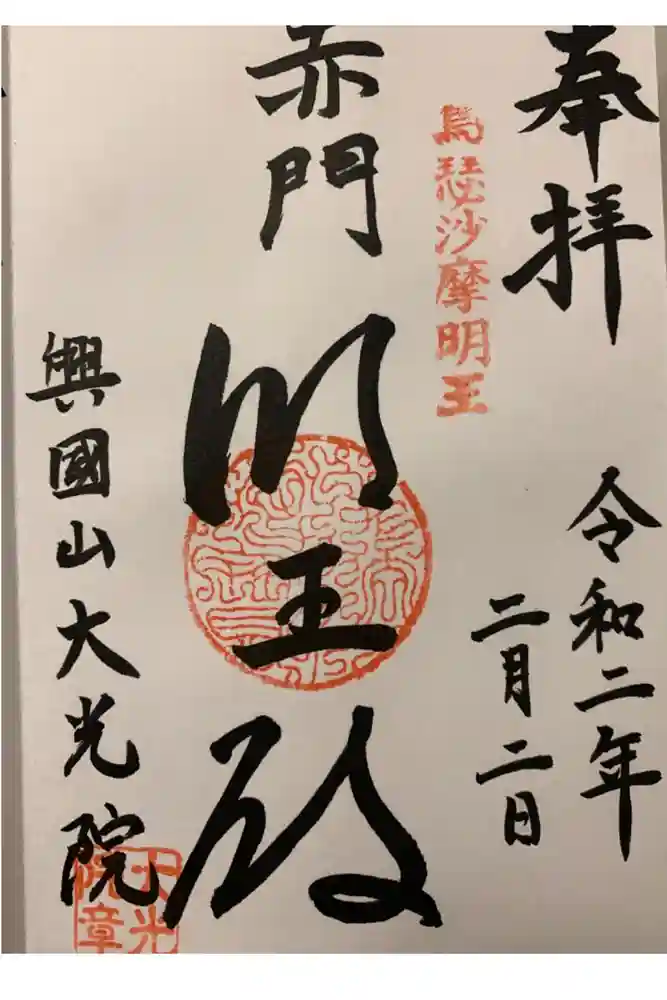 奉拝
令和二年
二月二日
烏瑟沙摩明王
赤門
明王殿
興國山大光院
大光
院章